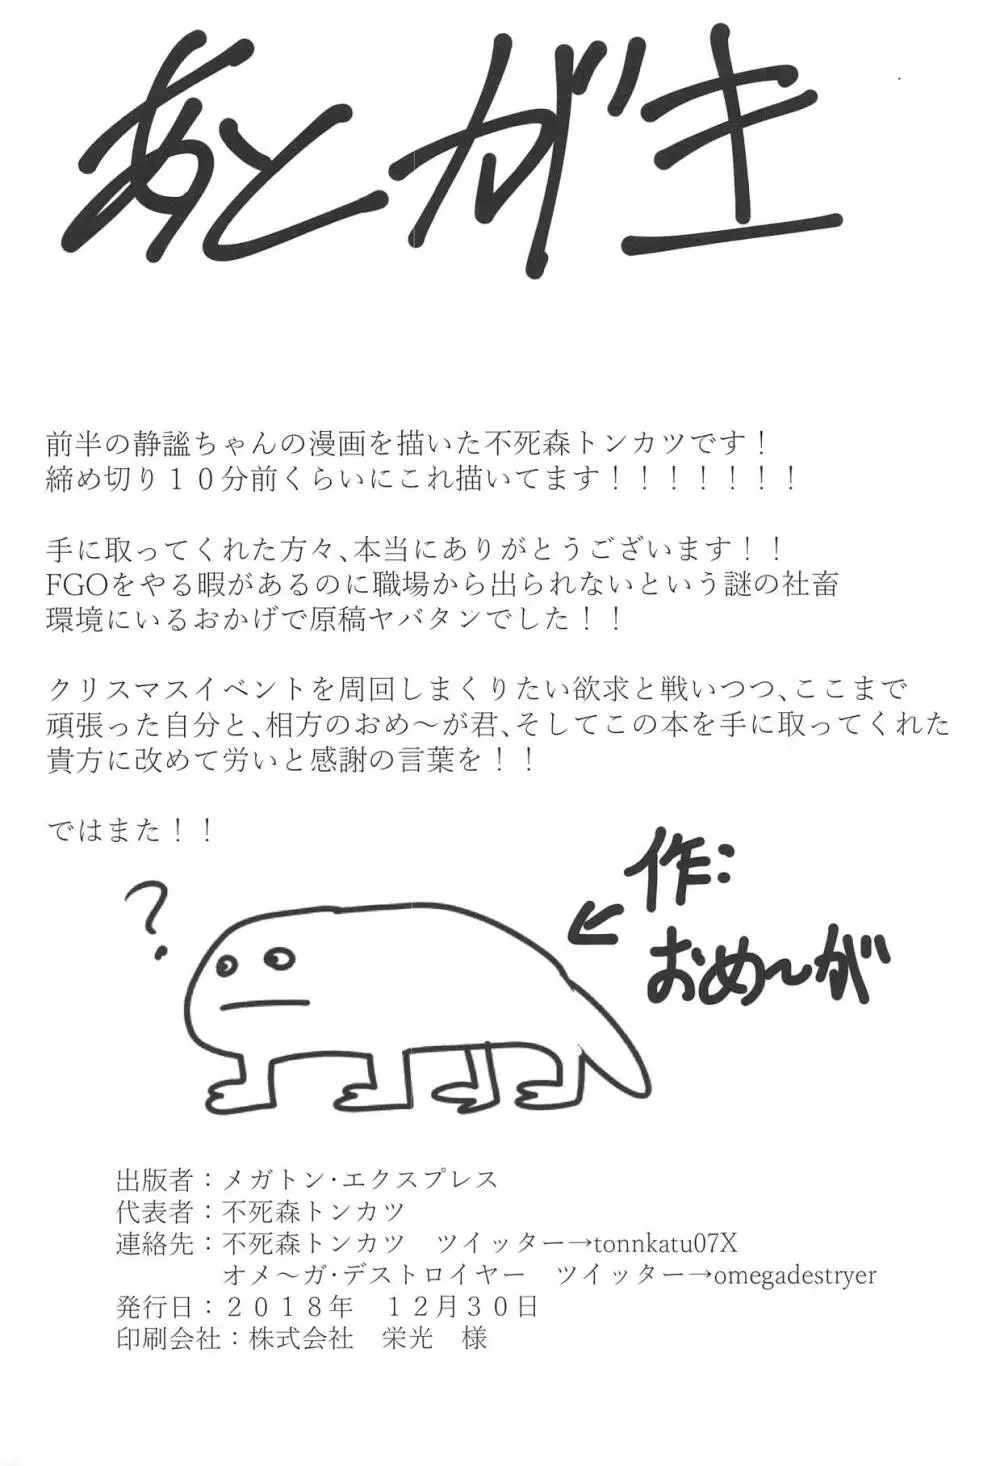 あとがき
前半の静謐ちゃんの漫画を描いた不死森トンカツです！
締め切り１０分前くらいにこれ描いてます！！！！！！！
手に取ってくれた方々、本当にありがとうございます！！
FGOをやる暇があるのに職場から出られないという謎の社畜
環境にいるおかげで原稿ヤバタンでした！！
クリスマスイベントを周回しまくりたい欲求と戦いつつ、ここまで
頑張った自分と、相方のおめ～が君、そしてこの本を手に取ってくれた
貴方に改めて労いと感謝の言葉を！！
ではまた！！
?
作:
おめ～が
出版者：メガトン・エクスプレス
代表者：不死森トンカツ
連絡先：不死森トンカツ　ツイッター→tonnkatu07X
オメ～ガ・デストロイヤー　ツイッター→omegadestryer
発行日：２０１８年　１２月３０日
印刷会社：株式会社　栄光　様